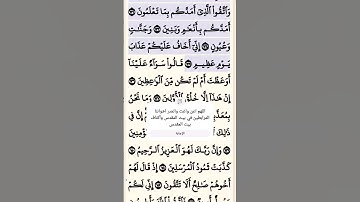 وَٱتَّقُوا۟ ٱلَّذِىٓ أَمَدَّكُم بِمَا تَعْلَمُونَ
أَمَدَّكُم بِأَنْعَٰمٍ وَبَنِينَ وَجَنَّٰتٍ
وَعُيُونٍ إِنِّىٓ أَخَافُ عَلَيْكُمْ عَذَابَ
يَوْمٍ عَظِيمٍ قَالُوا۟ سَوَآءٌ عَلَيْنَآ
أَوَعَظْتَ أَمْ لَمْ تَكُن مِّنَ ٱلْوَٰعِظِينَ
إِنْ هَٰذَآ إِلَّا خُلُقُ ٱلْأَوَّلِينَ وَمَا نَحْنُ
اللهم أعن وثبت وانصر اخواننا
المرابطين في بيت المقدس وأكناف
بيت المقدس
وَإِنَّ رَبَّكَ لَهُوَ ٱلْعَزِيزُ ٱلرَّحِيمُ
كَذَّبَتْ ثَمُودُ ٱلْمُرْسَلِينَ إِذْ قَالَ لَهُمْ
أَخُوهُمْ صَٰلِحٌ أَلَا تَتَّقُونَ إِنِّى لَكُمْ